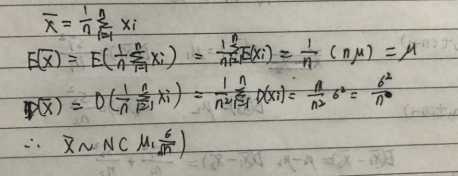 x̄ = 1/n Σ_{i=1}^{n} xi
E(x̄) = E(1/n Σ_{i=1}^{n} xi) = 1/n Σ_{i=1}^{n} E(xi) = 1/n (nμ) = μ
D(x̄) = D(1/n Σ_{i=1}^{n} xi) = 1/n² Σ_{i=1}^{n} D(xi) = n/n² σ² = σ²/n
∴ x̄ ~ N(μ, σ/√n)